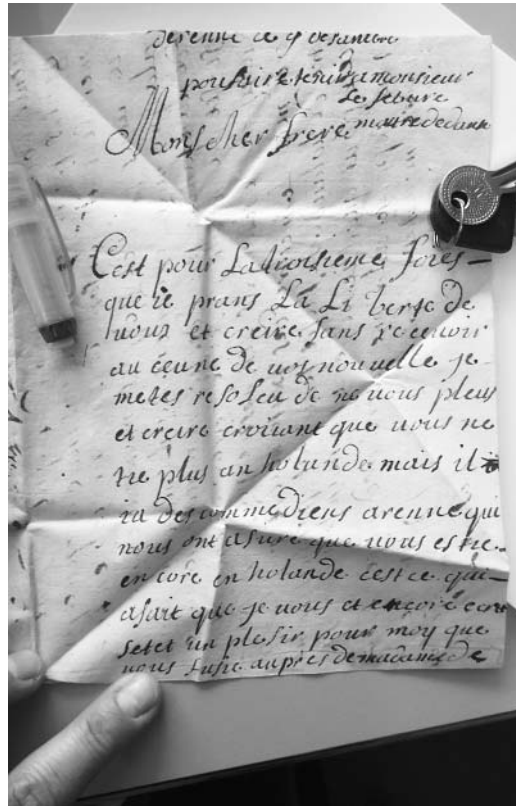 derenne ce 9 desambre
pour faire tenir a monsieur
Le febure
Mons cher frere maire de
Cest pour La troisieme fores-
que ie prans La Li berte de
vous et creire sans recevoir
au ceune de vos nouvelle je
metes resoleu de ne vous pleus
et creire croiiant que vous ne
tre plus an holande mais il
ia des commediens a renne qui
nous ont asure que vous estre
en core en holande cest ce qui-
a fait que je vous et encore
setet un plesir pour moy que
vous fusie aupres de madame de